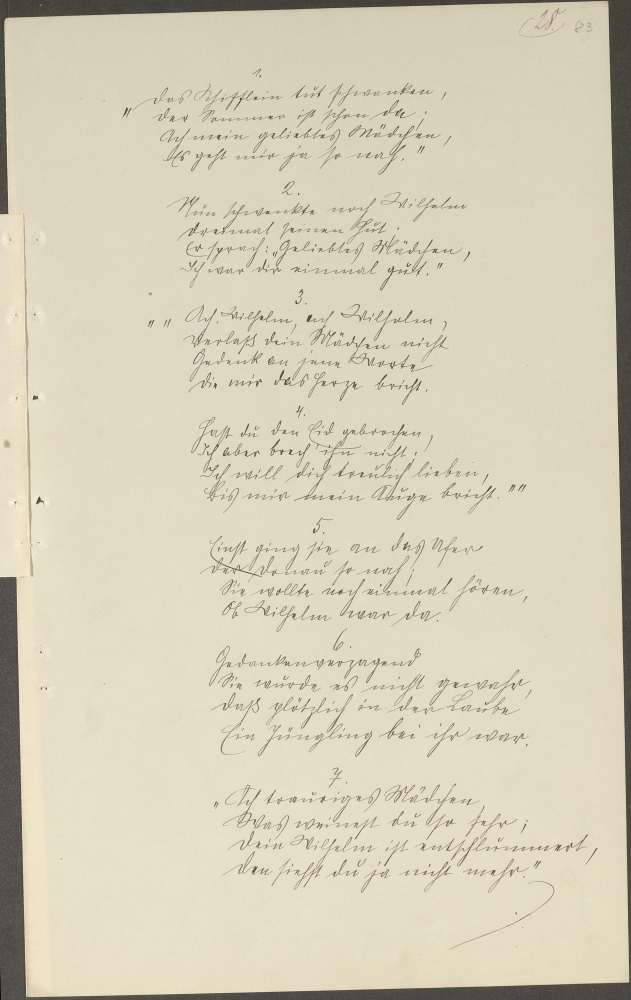 28. 83
1.
"Das Schifflein tut schwanken,
Der Sommer ist schon da;
Ach mein geliebtes Mädchen,
Es geht mir ja so nah."
2.
Nun schwenkte noch Wilhelm
Dreimal seinen Hut.
Er sprach: „Geliebtes Mädchen,
Ich war dir einmal gut."
3.
""Ach Wilhelm, ach Wilhelm,
Verlaß dein Mädchen nicht
Gedenk an jene Worte
Die mir das Herze bricht.
4.
Hast du den Eid gebrochen,
Ich aber brech' ihn nicht,
Ich will dich treulich lieben,
Bis mir mein Auge bricht.""
5.
Einst ging sie an das Ufer
Der Donau so nah;
Sie wollte noch einmal hören,
Ob Wilhelm war da.
6.
Gedankenverzagend
Sie wurde es nicht gewahr,
Daß plötzlich in der Laube
Ein Jüngling bei ihr war.
7.
„Ach trauriges Mädchen,
Was weinest du so sehr;
Dein Wilhelm ist entschlummert,
Den siehst du ja nicht mehr."